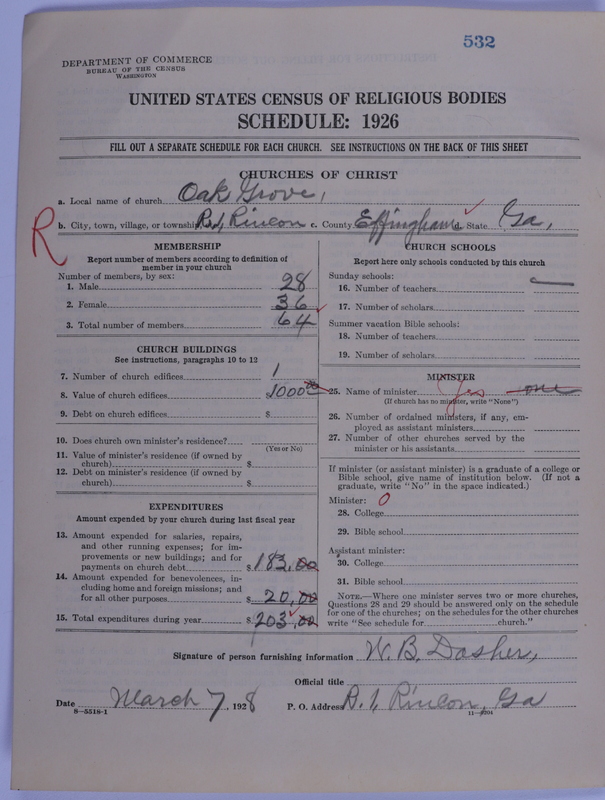 532
DEPARTMENT OF COMMERCE
BUREAU OF THE CENSUS
WASHINGTON
UNITED STATES CENSUS OF RELIGIOUS BODIES
SCHEDULE: 1926
FILL OUT A SEPARATE SCHEDULE FOR EACH CHURCH. SEE INSTRUCTIONS ON THE BACK OF THIS SHEET
CHURCHES OF CHRIST
a. Local name of church Oak Grove,
b. City, town, village, or township R.1, Rincon c. County Effingham d. State Ga,
R
MEMBERSHIP
Report number of members according to definition of
member in your church
Number of members, by sex:
1. Male 28
2. Female 36
3. Total number of members 64
CHURCH BUILDINGS
See instructions, paragraphs 10 to 12
7. Number of church edifices 1
8. Value of church edifices $1000.00
9. Debt on church edifices $
10. Does church own minister's residence?
(Yes or No)
11. Value of minister's residence (if owned by
church) $
12. Debt on minister's residence (if owned by
church) $
EXPENDITURES
Amount expended by your church during last fiscal year
13. Amount expended for salaries, repairs,
and other running expenses; for im-
provements or new buildings; and for
payments on church debt $183.00
14. Amount expended for benevolences, in-
cluding home and foreign missions; and
for all other purposes $20.00
15. Total expenditures during year $203.00
CHURCH SCHOOLS
Report here only schools conducted by this church
Sunday schools:
16. Number of teachers
17. Number of scholars
Summer vacation Bible schools:
18. Number of teachers
19. Number of scholars
MINISTER
25. Name of minister yes one
(If church has no minister, write "None")
26. Number of ordained ministers, if any, em-
ployed as assistant ministers
27. Number of other churches served by the
minister or his assistants
If minister (or assistant minister) is a graduate of a college or
Bible school, give name of institution below. (If not a
graduate, write "No" in the space indicated.)
Minister: 0
28. College
29. Bible school
Assistant minister:
30. College
31. Bible school
NOTE.—Where one minister serves two or more churches,
Questions 28 and 29 should be answered only on the schedule
for one of the churches; on the schedules for the other churches
write "See schedule for church."
Signature of person furnishing information W. B. Dasher,
Official title
Date March 7, 1928 P. O. Address R.1, Rincon, Ga
8—5518-1